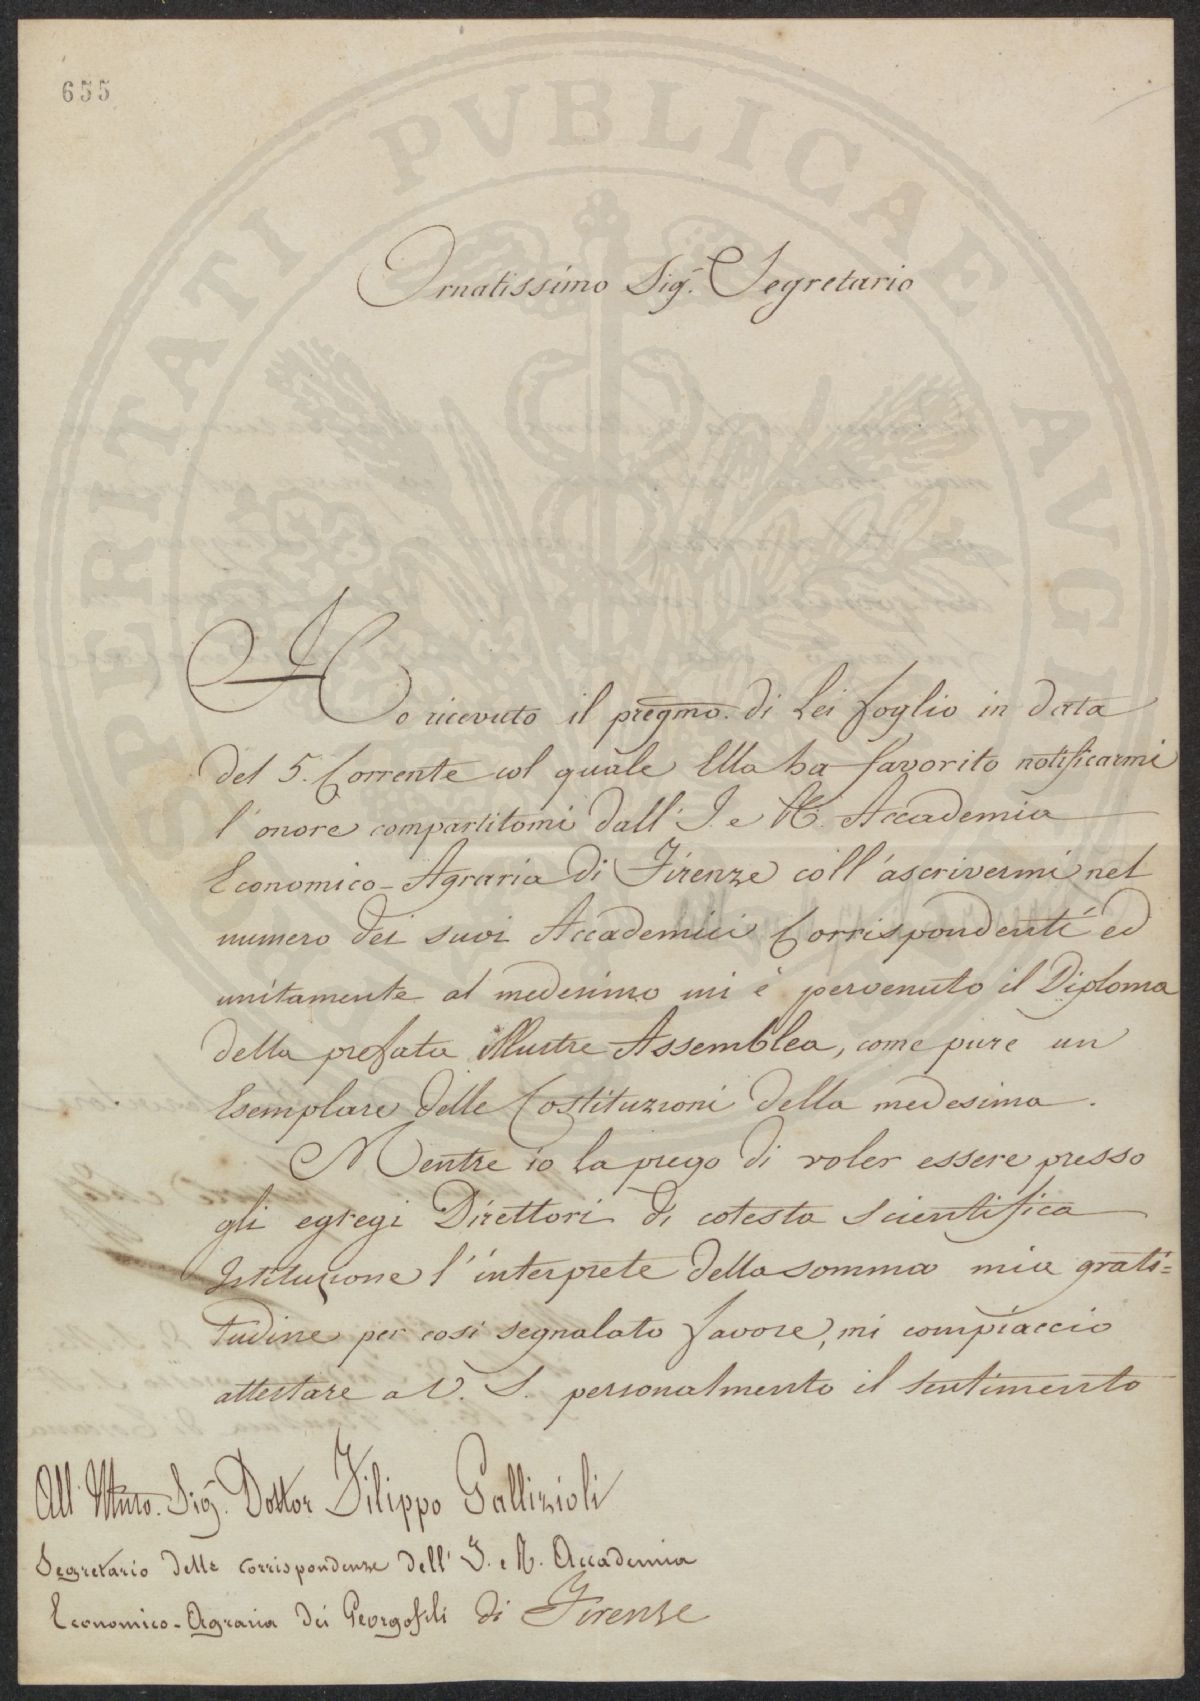 655
Ornatissimo Sig.r Segretario
Ho ricevuto il pregmo. di Lei foglio in data
del 5. Corrente col quale Ella ha favorito notificarmi
l'onore compartitomi dall' I. e R. Accademia
Economico-Agraria di Firenze coll'ascrivermi nel
numero dei suoi Accademici Corrispondenti ed
unitamente al medesimo mi è pervenuto il Diploma
della prefata illustre Assemblea, come pure un
Esemplare delle Costituzioni della medesima.
Mentre io La prego di voler essere presso
gli egregi Direttori di cotesta Scientifica
Istituzione l'interprete della somma mia grati=
tudine per così segnalato favore, mi compiaccio
attestare a V. S. personalmente il sentimento
All' Illmo. Sig.r Dottor Filippo Gallizioli
Segretario delle corrispondenze dell' I. e R. Accademia
Economico-Agraria dei Georgofili di Firenze
PROSPERITATI PVBLICAE AVGENDAE